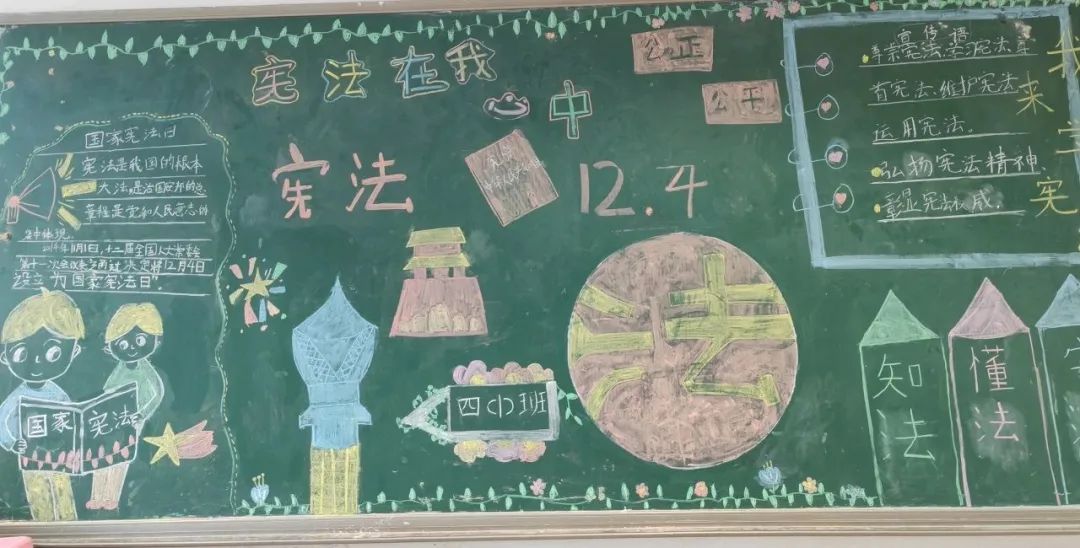 宪法在我
心中
公正
公平
宪法
12.4
国家宪法日
宪法是我国的根本
大法,是治国安邦的总
章程是党和人民意志的
集中体现。
2014年11月1日,十二届全国人大常委会
第十一次会议
决定将12月4日
设立为"国家宪法日"。
国家 宪法
四(1)班
法
宣传语
宪法
育宪法、维护宪法
运用宪法。
弘扬宪法精神、
彰显宪法权威。
我
来
宪
知法
懂法